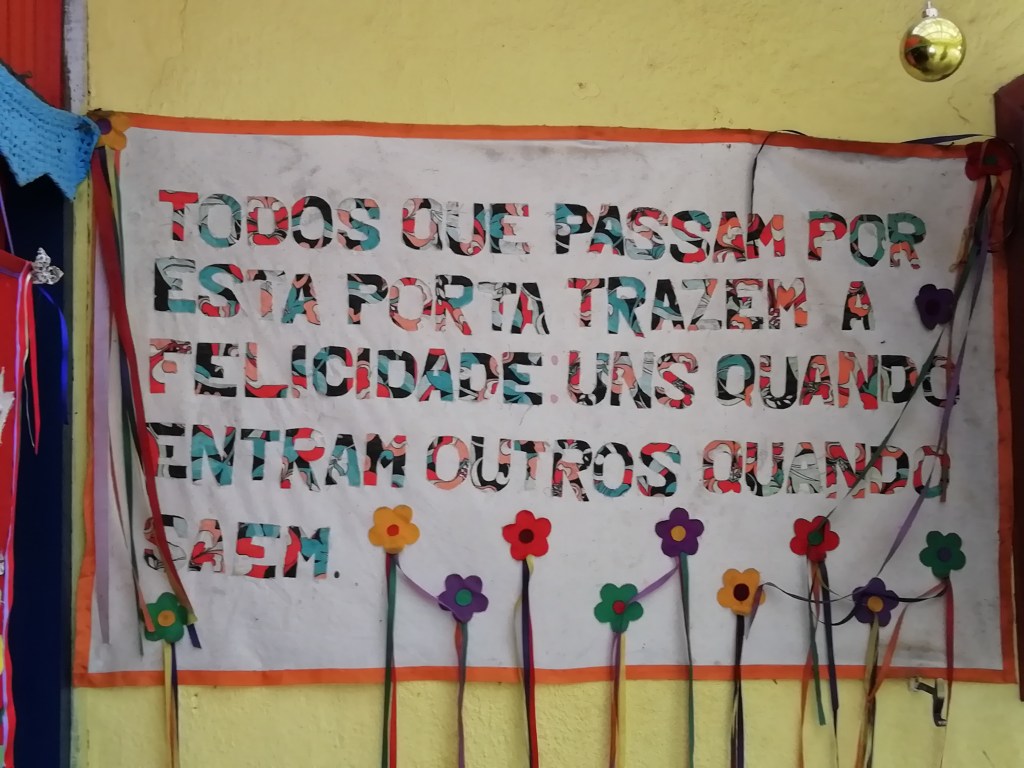 TODOS QUE PASSAM POR
ESTA PORTA TRAZEM A
FELICIDADE: UNS QUANDO
ENTRAM OUTROS QUANDO
SAEM.